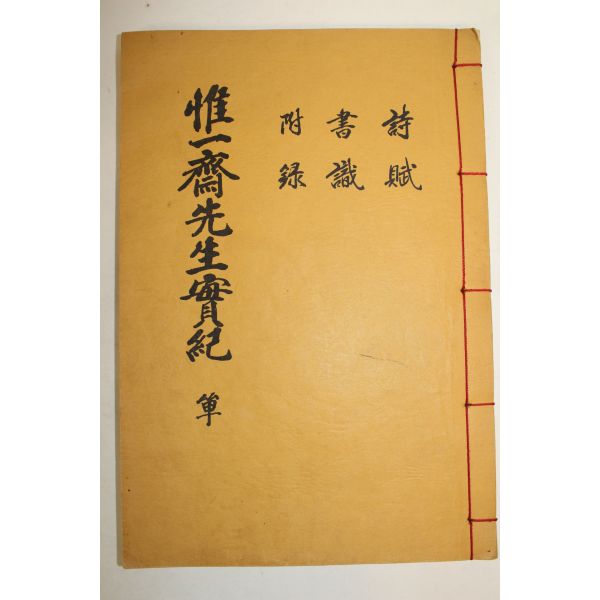 詩賦
書識
附録
惟一齋先生實紀 單